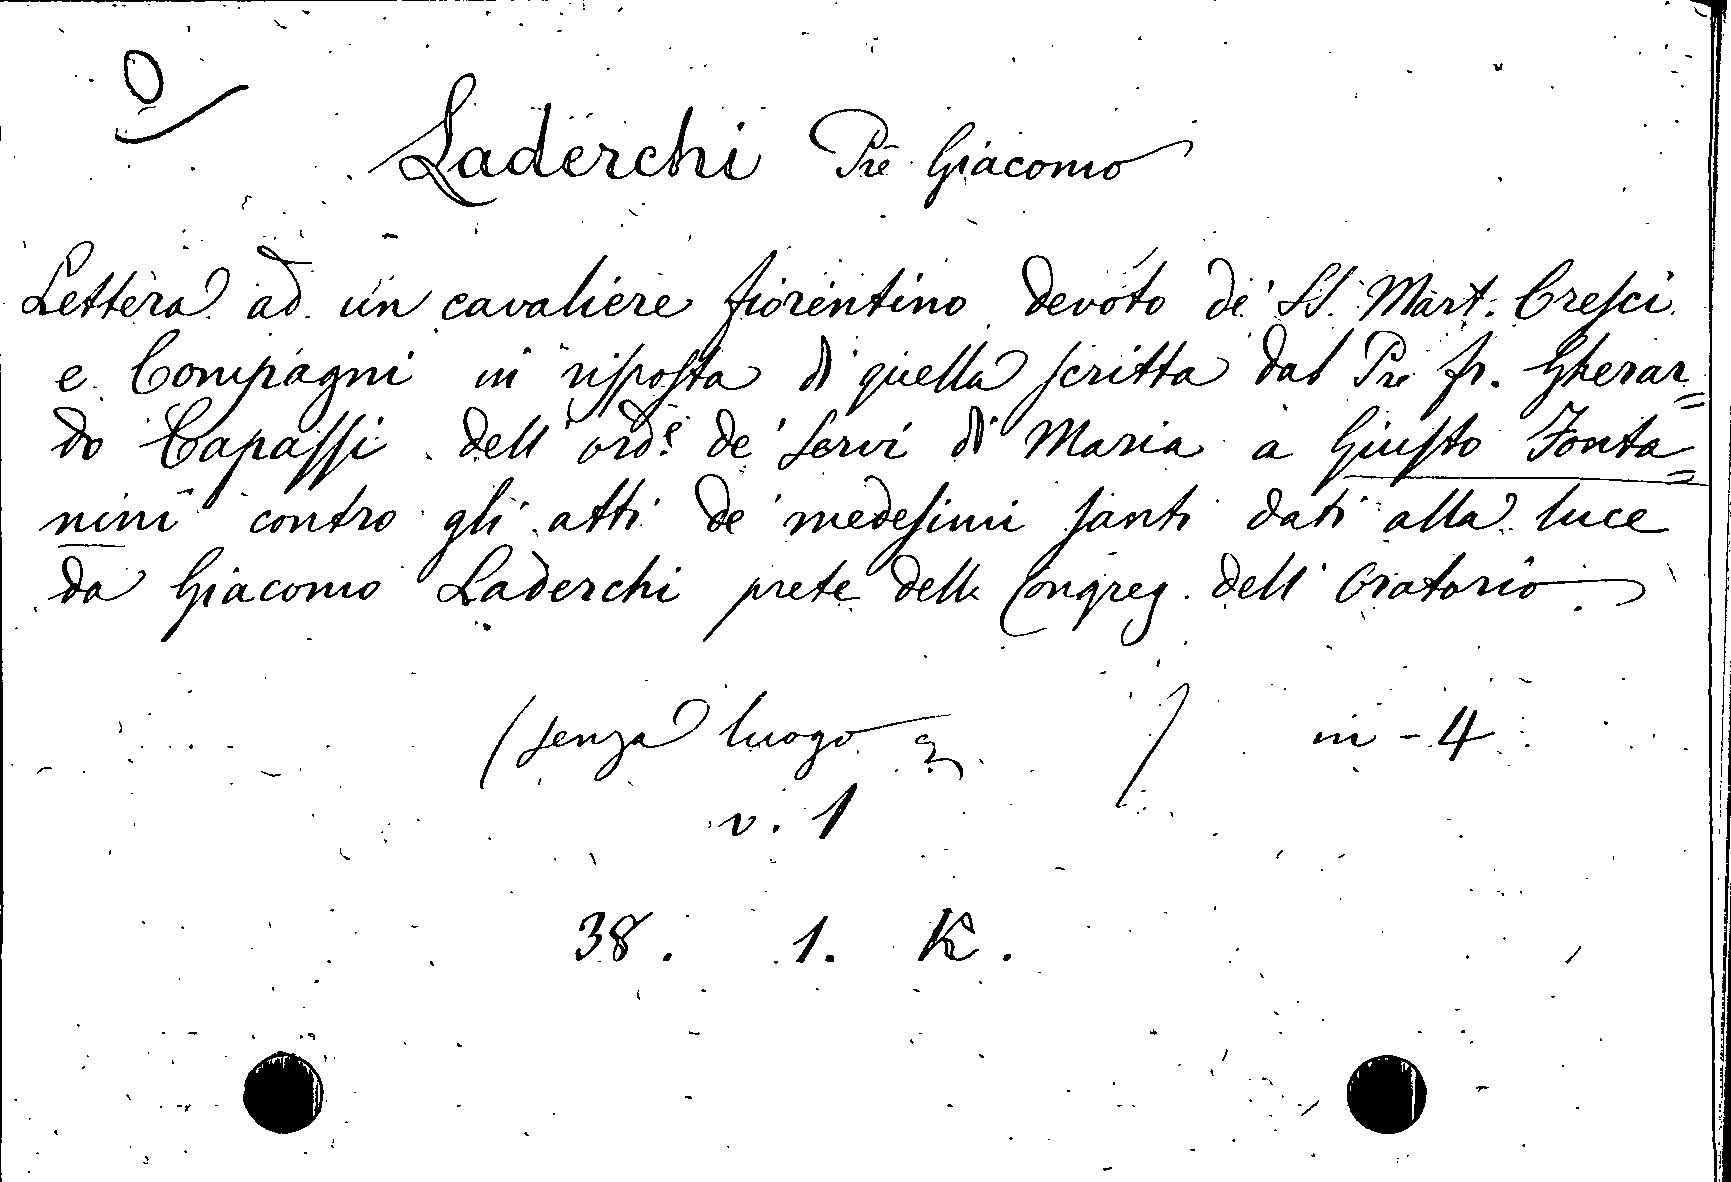 0
Laderchi Pre Giacomo
Lettera ad un cavaliere fiorentino devoto de' SS. Mart. Cresci
e Compagni in risposta di quella scritta dal Pre fr. Gherar=
do Capassi dell' ord.e de' Servi di Maria a Giusto Fonta=
nini contro gli atti de' medesimi santi dati alla luce
da Giacomo Laderchi prete della Congreg. dell' Oratorio.
(senza luogo ) in-4
v. 1
38. 1. K.